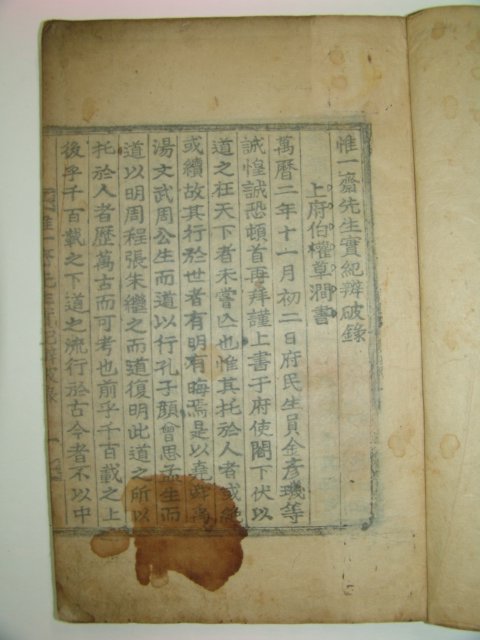 惟一齋先生實紀辨破錄
上府伯權草澗書
萬曆二年十一月初二日府民生員金彦璣等
誠惶誠恐頓首再拜謹上書于府使閤下伏以
道之在天下者未嘗亡也惟其托於人者或絶
或續故其行於世者有明有晦焉是以堯舜禹
湯文武周公生而道以行孔子顔曾思孟生而
道以明周程張朱繼之而道復明此道之所以
托於人者歷萬古而可考也前乎千百載之上
後乎千百載之下道之流行於古今者不以中
惟一齋先生實紀辨破錄 一